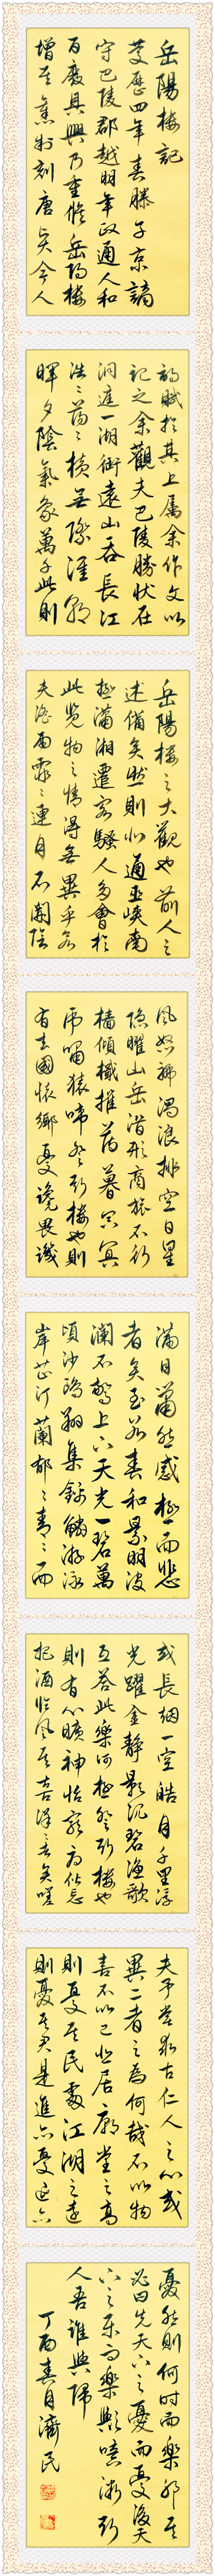 岳陽楼記
慶歷四年春滕子京謫
守巴陵郡越明年政通人和
百廢具興乃重修岳陽楼
增其舊制刻唐賢今人
詩賦於其上属余作文以
記之余觀夫巴陵勝狀在
洞庭一湖銜遠山吞長江
浩浩蕩蕩橫無際涯朝
暉夕陰氣象萬千此則
岳陽楼之大觀也前人之
述備矣然則北通巫峽南
極瀟湘遷客騷人多會於
此覽物之情得無異乎若
夫淫雨霏霏連月不開陰
風怒號濁浪排空日星
隐曜山岳潛形商旅不行
檣傾楫摧薄暮冥冥
虎嘯猿啼登斯楼也則
有去國懷鄉憂讒畏譏
滿目蕭然感極而悲
者矣至若春和景明波
瀾不驚上下天光一碧萬
頃沙鷗翔集錦鱗游泳
岸芷汀蘭郁郁青青而
或長烟一空皓月千里浮
光躍金静影沉璧漁歌
互答此樂何極登斯楼也
則有心曠神怡寵辱偕忘
把酒临風其喜洋洋者矣嗟
夫予嘗求古仁人之心或
異二者之為何哉不以物
喜不以己悲居廟堂之高
則憂其民處江湖之遠
則憂其君是進亦憂退亦
憂然則何时而樂耶其
必曰先天下之憂而憂後天
下之乐而樂歟噫微斯
人吾誰與歸
丁酉春月濟民